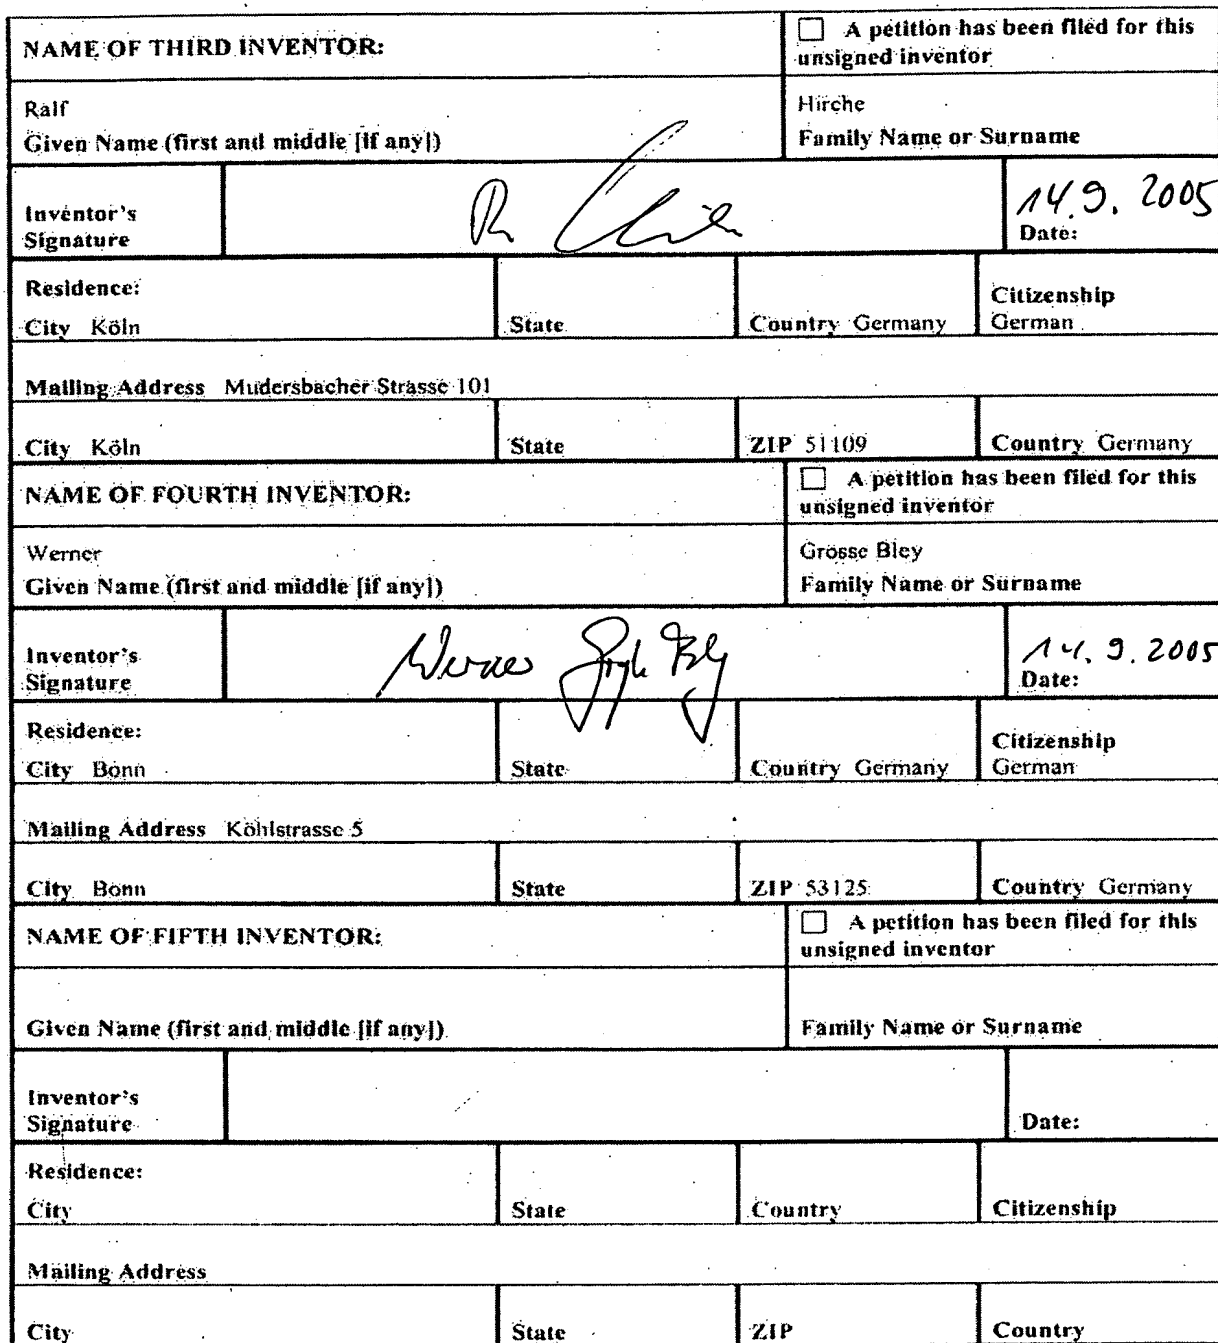 NAME OF THIRD INVENTOR:
☐ A petition has been filed for this
unsigned inventor
Ralf
Given Name (first and middle [if any])
Hirche
Family Name or Surname
Inventor's
Signature
14.9.2005
Date:
Residence:
City Köln
State
Country Germany
Citizenship
German
Mailing Address Mudersbacher Strasse 101
City Köln
State
ZIP 51109
Country Germany
NAME OF FOURTH INVENTOR:
☐ A petition has been filed for this
unsigned inventor
Werner
Given Name (first and middle [if any])
Grosse Bley
Family Name or Surname
Inventor's
Signature
Werner Große Bley
14.9.2005
Date:
Residence:
City Bonn
State
Country Germany
Citizenship
German
Mailing Address Köhlstrasse 5
City Bonn
State
ZIP 53125
Country Germany
NAME OF FIFTH INVENTOR:
☐ A petition has been filed for this
unsigned inventor
Given Name (first and middle [if any])
Family Name or Surname
Inventor's
Signature
Date:
Residence:
City
State
Country
Citizenship
Mailing Address
City
State
ZIP
Country